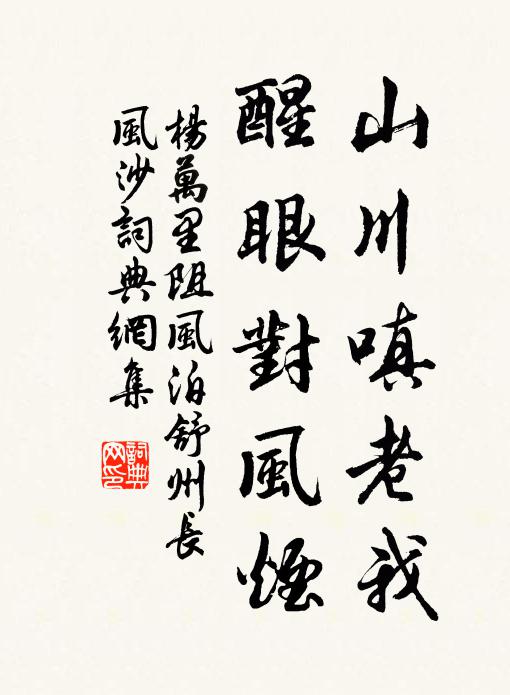 山川嗔老我
醒眼對風煙
楊萬里阻風泊舒州長
風沙詞典網集
詞典
网印